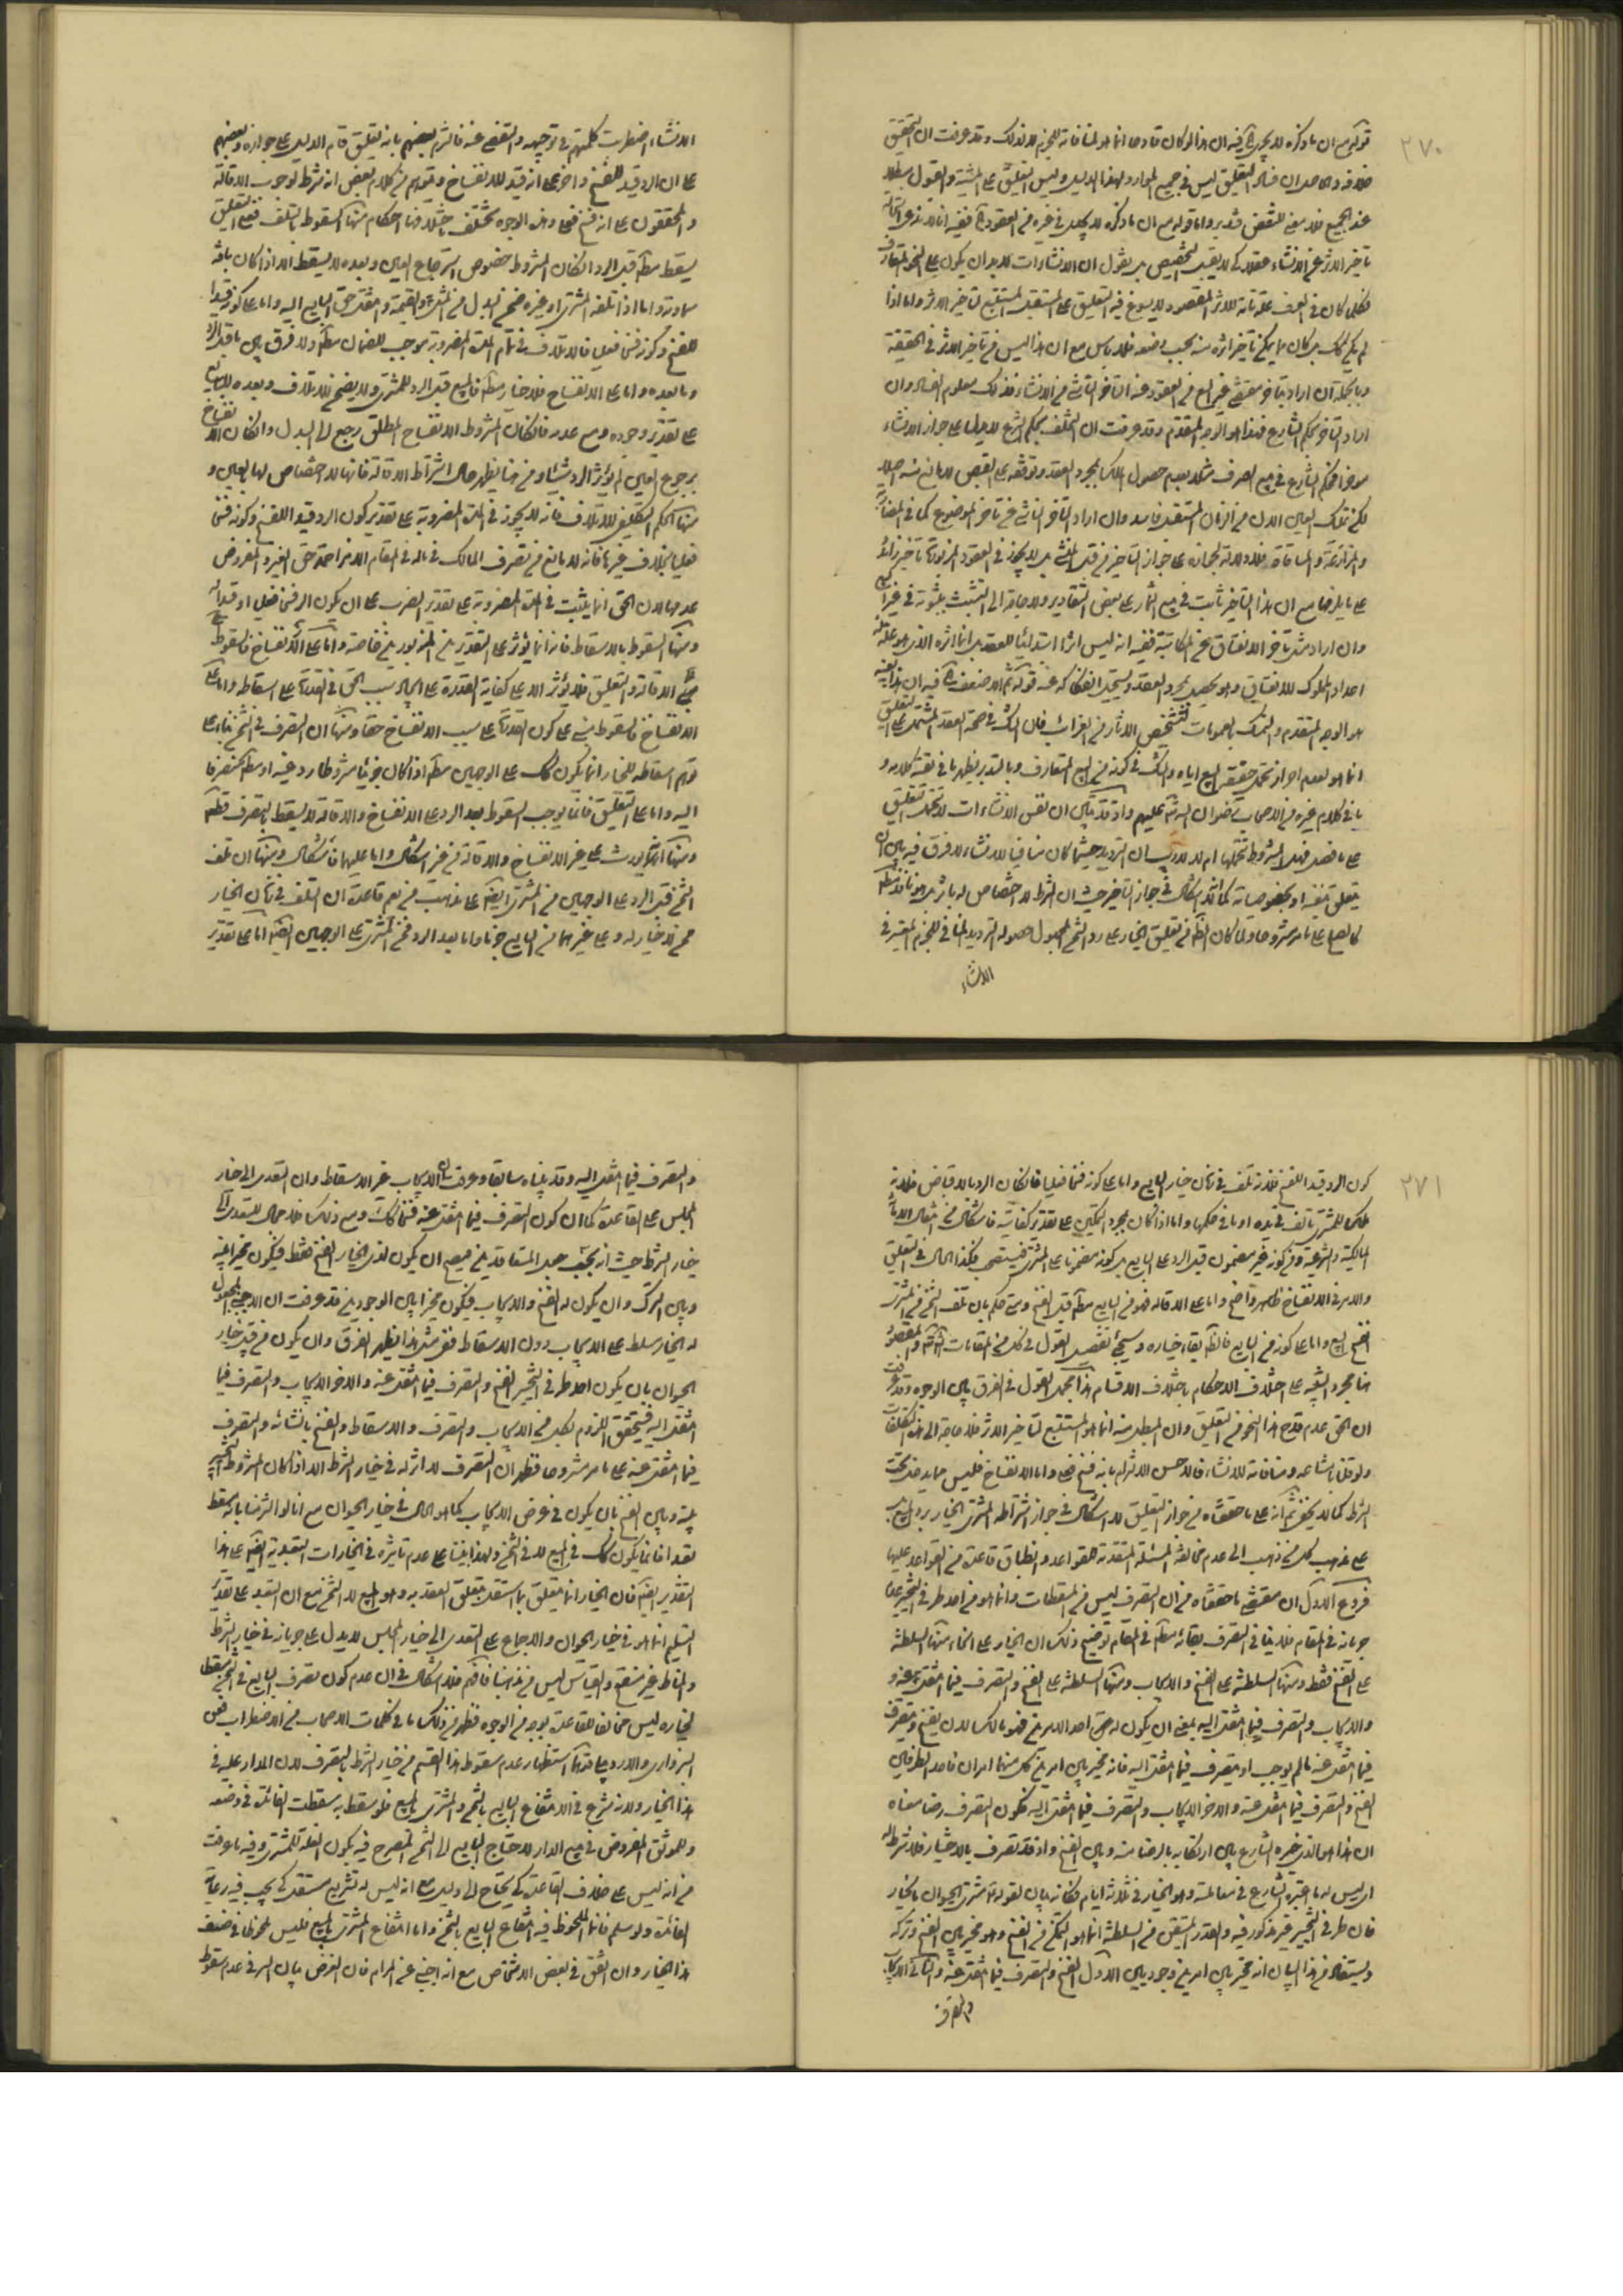 ٢٧٠
قوله مع ان ما ذكره لا يجرى فيه ان هذا لو كان قادحا انما هو لمنافاته للجزم لا لذلك وقد عرفت ان التحقيق
خلافه والحاصل ان فساد التعليق ليس فى جميع الموارد لهذا الدليل وليس التعليق على المشية والقول ببطلانه
عند الجميع فلا معنى للنقض
تاخير الاثر عن الانشاء عقلا كى لا يقبل التخصيص بل يقول ان الانشاءات لا بد ان يكون على النحو المتعارف
فكلما كان فى العرف علة تامة للاثر المقصود لا يسوغ فيه التعليق على المستقبل المستتبع لتاخير الاثر واما اذا
لم يكن كك بل كان مما يمكن تاخير اثره عنه بحسب وضعه فلا باس مع ان هذا ليس من تاخير الاثر فى الحقيقة
وبالجملة ان اراد بتاخر مقتضى غير البيع من العقود عنه التاخر الناشى من الانشاء فذلك معلوم الفساد وان
اراد التاخر بحكم الشارع فهذا هو الوجه المتقدم وقد عرفت ان التخلف بحكم الشرع لا يدل على جواز الانشاء
موخرا فحكم الشارع فى بيع الصرف مثلا بعدم حصول الملك بمجرد العقد وتوقفه على القبض
لكن تملك العين الاول من الزمان المستقبل فاسد وان اراد التاخر الناشى عن تاخر الموضوع كما فى المضاربة
والمزارعة والمساقاة فلا دلالة لجوازه على جواز التاخير من قبل المنشى بل لا يجوز فى العقود المزبورة تاخير زائد
على ما يلزمها مع ان هذا التاخير ثابت فى بيع الثمار على بعض التقادير ولا حاجة الى التشبث بثبوته فى غير البيع
وان اراد مثل تاخر الانعتاق عن المكاتبة ففيه انه ليس اثرا ابتدائيا للعقد بل انما اثره الذى هو علة له
اعداد المملوك للانعتاق وهو يحصل بمجرد العقد ويستحيل انفكاكه عنه قوله ثم الاضعف فيه ان هذا بعينه
هو الوجه المتقدم والتمسك بالعمومات لتشخيص الاثار من الغرائب فان الشك فى صحة العقد المشتمل على التعليق
انما هو لعدم احراز تحمل حقيقة البيع اياه والشك فى كونه من البيع المتعارف وبالتدبر يظهر ما فى بقية كلامه و
ما فى كلام غيره من الاصحاب رضوان الله عليهم واذ قد تبين ان نفس الانشاءات لا تتحمل التعليق
على ما فصل فهل الشروط تتحملها ام لا لا ريب ان الترديد حيثما كان منافيا للانشاء لا فرق فيه بين ان
يتعلق بنفسه او بخصوصياته كما انه لا اشكال فى جواز التاخير حيث ان الشرط لا اختصاص له باثر بل هو نافذ مطلقا
كالصلح على ما مر مشروحا ولما كان الظاهر من تعليق الخيار على رد الثمن المجهول حصوله الترديد المنافى للجزم المعتبر فى
الانشاء
الانشاء اضطربت كلمتهم فى توجيهه والتفصى عنه فالتزم بعضهم بانه تعليق قام الدليل على جوازه وبعضهم
على ان الرد قيد للفسخ واخر على انه قيد للانفساخ ويتوهم من كلام بعض انه شرط لوجوب الاقالة
والمحققون على انه فسخ فعلى وهذه الوجوه تختلف باختلافها احكام منها السقوط بالتلف فعلى التعليق
يسقط مطلقا قبل الرد ان كان المشروط خصوص استرجاع العين وبعده لا يسقط الا اذا كان بافة
سماوية واما اذا اتلفه المشترى او غيره ضمن البدل من المثل والقيمة وانتقل حق البايع اليه واما على كونه قيدا
للفسخ وكونه فسخا فعليا فالاتلاف فى تمام المدة المضروبة يوجب الضمان مطلقا ولا فرق بين ما قبل الرد
وما بعده واما على الانفساخ فلا خيار مطلقا فالمبيع قبل الرد للمشترى ولا يضمن بالاتلاف وبعده للبايع
على تقدير وجوده ومع عدمه فان كان المشروط الانفساخ المطلق رجع الى البدل وان كان الانفساخ
برجوع العين لم يؤثر الرد شيئا ومن هنا يظهر حال اشتراط الاقالة فانها لا اختصاص لها بالعين و
منها الحكم التكليفى للاتلاف فانه لا يجوز فى المدة المضروبة على تقدير كون الرد قيدا للفسخ وكونه فسخا
فعليا بخلاف غيرهما فانه لا مانع من تصرف المالك فى ماله فى المقام الا مزاحمة حق الغير والمفروض
عدمها لان الحق انما يثبت فى المدة المضروبة على تقدير الضرب على ان يكون الرد فسخا فعليا او قيدا له
ومنها السقوط بالاسقاط فانه انما يؤثر على التقديرين المزبورين خاصة واما على الانفساخ فالسقوط
الاقالة والتعليق فلا يؤثر الا على كفاية القدرة على ايجاد سبب الحق فى القدرة على اسقاطه واما على
الانفساخ فالسقوط مبنى على كون القدرة على سبب الانفساخ حقا ومنها ان التصرف فى الثمن بناء على
توهم اسقاطه للخيار انما يكون كك على الوجهين مطلقا اذا كان جزئيا مشروطا رد عينه او مطلقا كتصرفا
اليه واما على التعليق فانما يوجب السقوط بعد الرد على الانفساخ والاقالة لا يسقط بالتصرف قطعا
ومنها انه يورث على غير الانفساخ والاقالة من غير اشكال واما عليهما فاشكال ومنها ان تلف
الثمن قبل الرد على الوجهين من المشترى ايضا على مذهب من يعم قاعدة ان التلف فى زمان الخيار
ممن لا خيار له وعلى غيرهما من البايع جزما واما بعد الرد فمن المشترى على الوجهين ايضا واما على تقدير
٢٧١
كون الرد قيدا للفسخ فلانه تلف فى زمان خيار البايع واما على كونه فسخا فعليا فان كان الرد بالاقباض فلانه
ملك للمشترى تالف فى يده او ما فى حكمها واما اذا كان بمجرد التمكين على تقدير كفايته فاشكال من انتقال
المالكية الشرعية ومن كونه غير مضمون قبل الرد على البايع بل كونه مضمونا على المشترى فيستصحب وكذا الحال فى التعليق
والامر فى الانفساخ ظاهر واضح واما على الاقالة فهو من البايع مطلقا قبل الفسخ ومتى حكم بان تلف الثمن من المشترى
انفسخ البيع واما على كونه من البايع فالظاهر بقاء خياره وسيجئ تفصيل القول فى كل من المقامات والمقصود
هنا مجرد التنبيه على اختلاف الاحكام باختلاف الاقسام هذا مجمل القول فى الفرق بين الوجوه وقد عرفت
ان الحق عدم قدح هذا النحو من التعليق وان المبطل منه انما هو المستتبع لتاخير الاثر فلا حاجة الى هذه التكلفات
ولو قلنا بامتناعه ومنافاته للانشاء فالاحسن الالتزام بانه فسخ فعلى واما الانفساخ فليس مما يدخل تحت
الشرط كما لا يخفى ثم انه على ما حققناه من جواز التعليق لا اشكال فى جواز اشتراط المشترى الخيار برد المبيع بل
على مذهب كل من ذهب الى عدم مخالفة المسئلة المتقدمة للقواعد وانطباق قاعدة من القواعد عليها
فروع الاول ان مقتضى ما حققناه من ان التصرف ليس من المسقطات وانما هو من احد طرفى التخيير
جريانه فى المقام فلا ينافى التصرف بقائه مطلقا فى المقام توضيح ذلك ان الخيار على انحاء منها السلطنة
على الفسخ فقط ومنها السلطنة على الفسخ والايجاب ومنها السلطنة على الفسخ والتصرف فيما انتقل عنه و
والايجاب والتصرف فيما انتقل اليه بمعنى ان يكون له حق احد الامرين فهو مالك لان يفسخ ويتصرف
فيما انتقل عنه ما لم يوجب او يتصرف فيما انتقل اليه فانه مخير بين امرين كل منهما امران فاحد الطرفين
الفسخ والتصرف فيما انتقل عنه والاخر الايجاب والتصرف فيما انتقل اليه فكون التصرف رضا معناه
ان هذا هو الذى خيره الشارع بين ارتكابه بالرضا منه وبين الفسخ واذ قد تصرف بالاختيار فلا شرط له
اى ليس له ما اعتبره الشارع فى معاملته وهو الخيار فى ثلاثة ايام فكانه بيان لقوله مشترى الحيوان بالخيار
فان طرفى التخيير غير مذكور فيه والقدر المتيقن من السلطنة انما هو التمكن من الفسخ وهو مخير بين الفسخ وتركه
ويستفاد من هذا البيان انه مخير بين امرين وجوديين الاول الفسخ والتصرف فيما انتقل عنه والثانى الايجاب
والتصرف
والتصرف فيما انتقل اليه وقد بيناه سابقا وعرفت ان الايجاب غير الاسقاط وان التعدى الى خيار
المجلس على القاعدة كما ان كون التصرف فيما انتقل عنه فسخا كك ومع ذلك فلا مجال للتعدى الى
خيار الشرط حيث انه بحسب جعل المتعاقدين فيصح ان يكون لذى الخيار الفسخ فقط فيكون مخيرا بينه
وبين الترك وان يكون له الفسخ والايجاب فيكون مخيرا بين الوجوديين وقد عرفت ان الاجنبى المجعول
له الخيار سلط على الايجاب دون الاسقاط ففى مثل هذا يظهر الفرق وان يكون من قبيل خيار
الحيوان بان يكون احد طرفى التخيير الفسخ والتصرف فيما انتقل عنه والاخر الايجاب والتصرف فيما
انتقل اليه فيتحقق اللزوم بكل من الايجاب والتصرف والاسقاط والفسخ بانشائه والتصرف
فيما انتقل عنه على ما مر مشروحا فظهر ان التصرف لا اثر له فى خيار الشرط الا اذا كان المشروط التخيير
بينه وبين الفسخ بان يكون فى عرض الايجاب كما هو الحال فى خيار الحيوان مع انا لو التزمنا بانه مسقط
تعبدا فانما يكون كك فى المبيع لا فى الثمن ولهذا بنينا على عدم تاثيره فى الخيارات التعبدية ايضا على هذا
التقدير ايضا فان الخيار انما يتعلق بما استقل بتعلق العقد به وهو المبيع لا الثمن مع ان التعبد على تقدير
التسليم انما هو فى خيار الحيوان والاجماع على التعدى الى خيار المجلس لا يدل على جريانه فى خيار الشرط
والمناط غير منقح والقياس ليس من مذهبنا فافهم فلا اشكال فى ان عدم كون تصرف البايع فى الثمن مسقطا
لخياره ليس مخالفا للقاعدة بوجه من الوجوه فظهر من ذلك ما فى كلمات الاصحاب من الاضطراب فعن
السبزوارى والاردبيلى قدهما استظهار عدم سقوط هذا القسم من خيار الشرط بالتصرف لان المدار عليه فى
هذا الخيار ولانه شرع فى الانتفاع البايع بالثمن والمشترى بالمبيع فلو سقط به سقطت الفائدة فى وضعه
وللموثق المفروض فى بيع الدار لاحتياج البايع الى الثمن المصرح فيه بكون الغلة للمشترى وفيه ما عرفت
من انه ليس على خلاف القاعدة كى يحتاج الى دليل مع انه ليس له تشريع مستقل كى يجب فيه رعاية
الفائدة ولو سلم فانما الملحوظ فيه انتفاع البايع بالثمن واما انتفاع المشترى بالمبيع فليس ملحوظا فى ضعف
هذا الخيار وان اتفق فى بعض الاشخاص مع انه اجنبى عن المرام فان الغرض بيان السر فى عدم سقوط